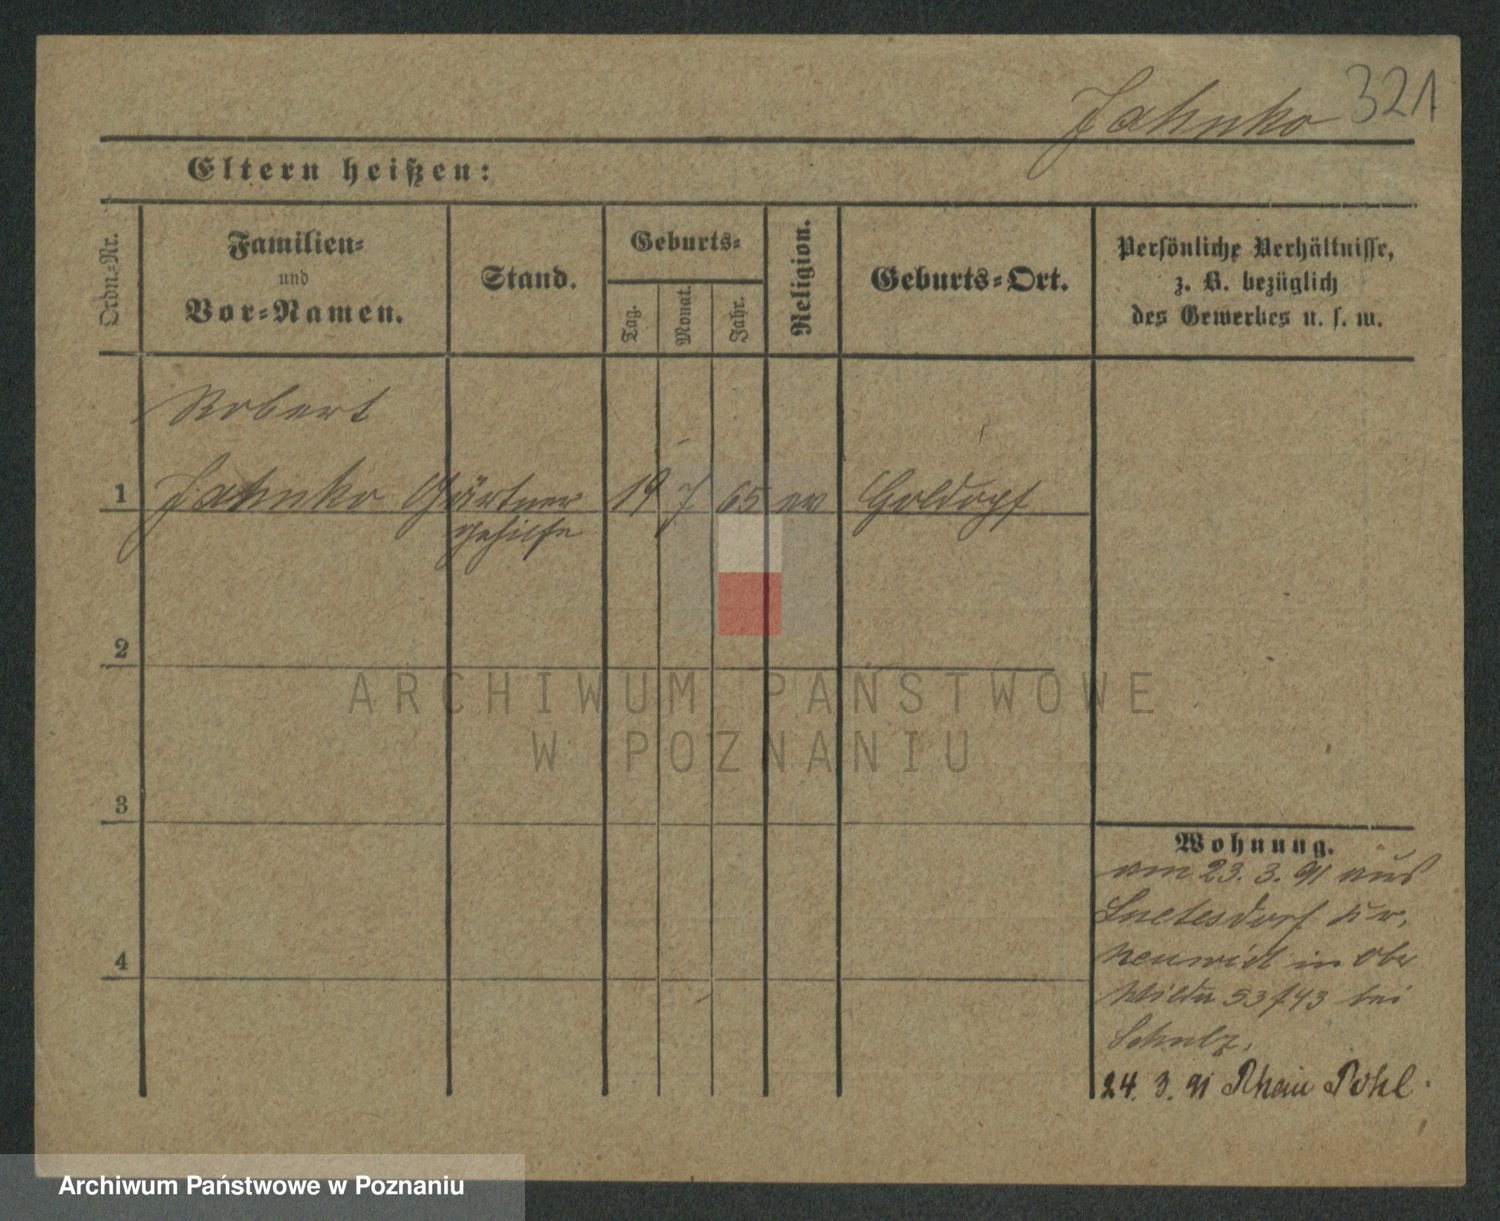 Jahnke 321
Eltern heißen:
Ordn.-Nr.
Familien-
und
Vor-Namen.
Stand.
Geburts-
Tag.
Monat.
Jahr.
Religion.
Geburts-Ort.
Persönliche Verhältnisse,
z. B. bezüglich
des Gewerbes u. s. w.
Robert
1 Jahnke Gärtner 19 7 65 ev
gehilfe
2
3
4
Wohnung.
am 23. 3. 91 aus
Kr.
Neuwied in Ober
Wilda 53/43 bei
Schulz.
24. 3. 91
ARCHIWUM PAŃSTWOWE
W POZNANIU
Archiwum Państwowe w Poznaniu